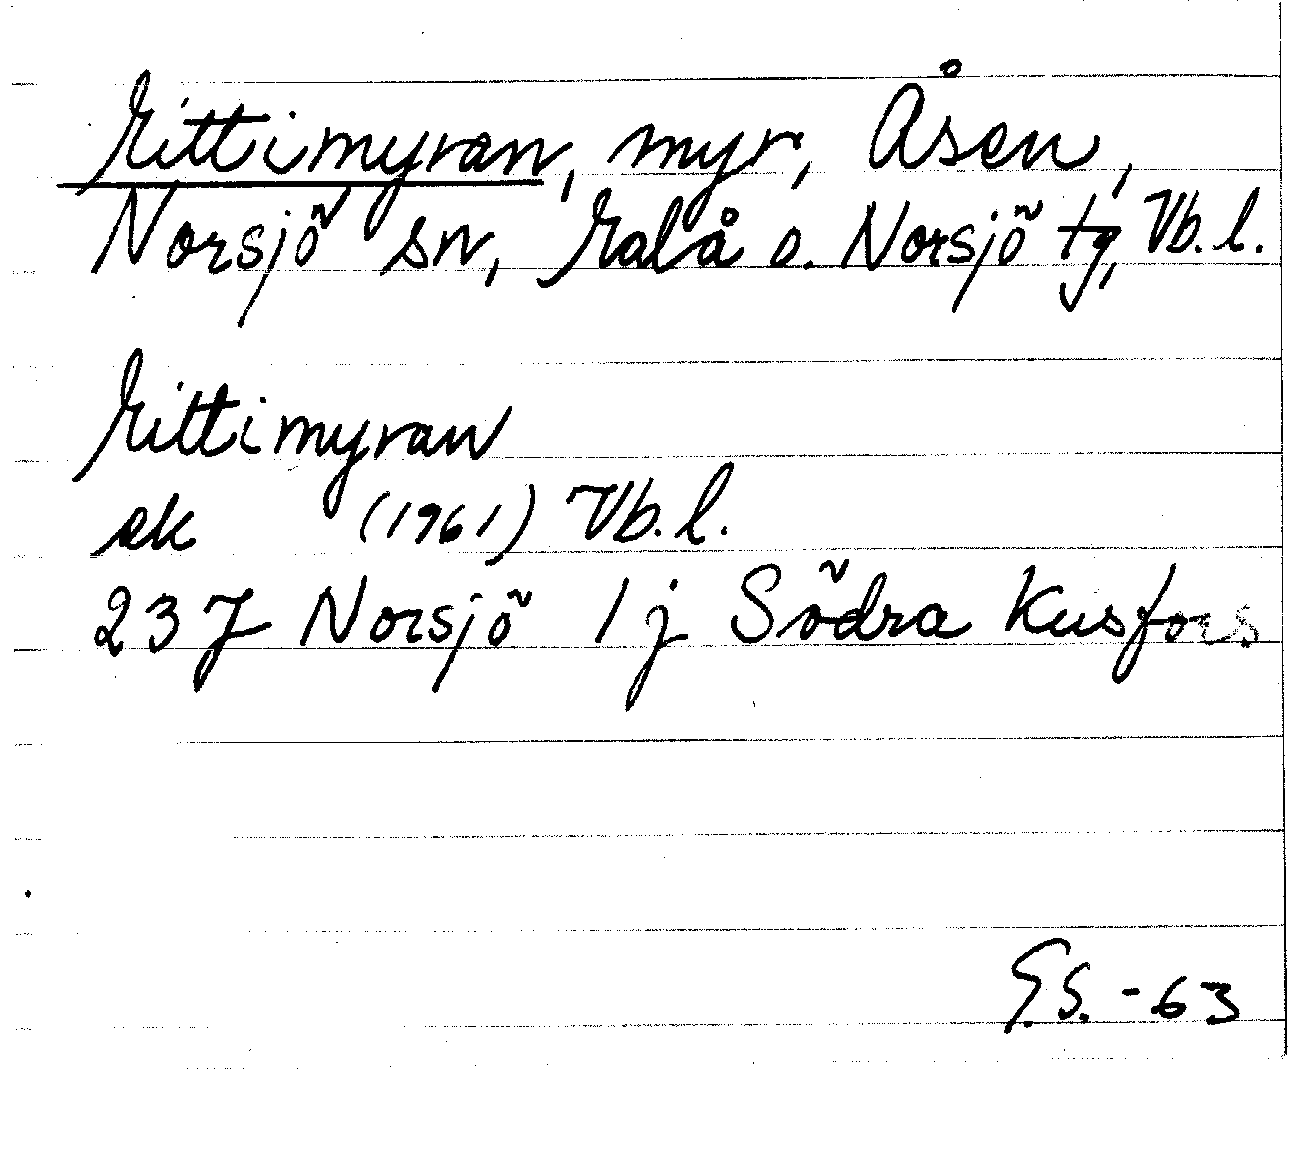 Mittimyran, myr, Åsen,
Norsjö sn, Malå o. Norsjö tg, Vb. l.
Mittimyran
ek (1961) Vb. l.
23 J Norsjö 1 j Södra Kusfors
G.S. - 63